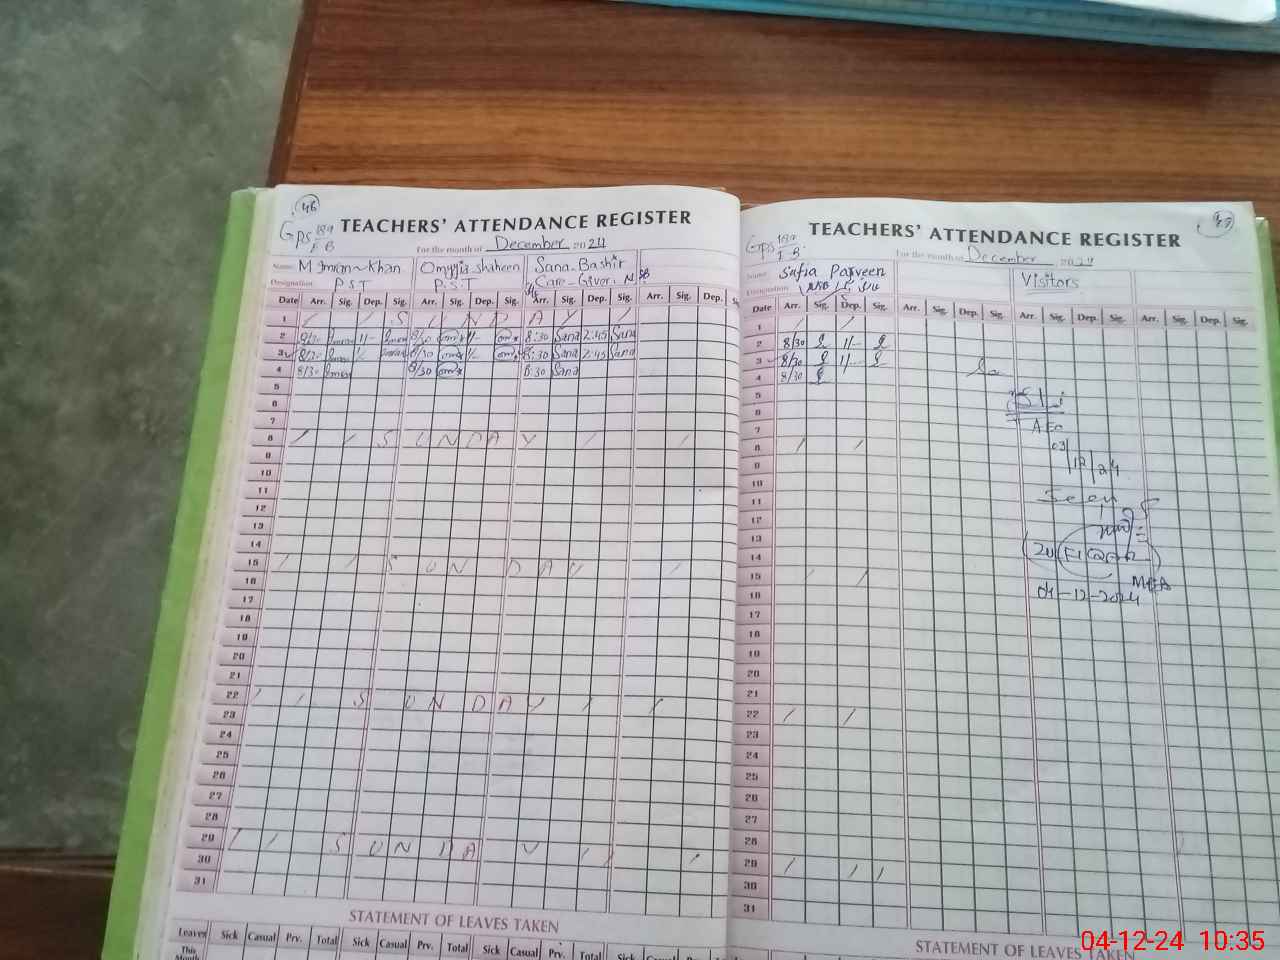 46
TEACHERS' ATTENDANCE REGISTER
Gps 189
E B
For the month of December 2024
Name M Imran Khan Omyyia Shaheen Sana Bashir
Designation P.S.T P.S.T Care-Giver
Date Arr. Sig. Dep. Sig. Arr. Sig. Dep. Sig. Arr. Sig. Dep. Sig. Arr. Sig. Dep.
1 S U N D A Y
2 8/30 Imran 1/- Imran 8/30 1/- 8:30 Sana 2:45 Sana
3 8/30 Imran 1/- Imran 8/30 1/- 8:30 Sana 2:45 Sana
4 8/30 Imran 8/30 8:30 Sana
5
6
7
8 S U N D A Y
9
10
11
12
13
14
15 S U N D A Y
16
17
18
19
20
21
22 S U N D A Y
23
24
25
26
27
28
29 S U N D A Y
30
31
STATEMENT OF LEAVES TAKEN
Leaves Sick Casual Prv. Total Sick Casual Prv. Total Sick Casual Prv. Total Sick Casual
This
Month
47
TEACHERS' ATTENDANCE REGISTER
Gps 189
E B
For the month of December 2024
Name Safia Parveen Visitors
Designation
Date Arr. Sig. Dep. Sig. Arr. Sig. Dep. Sig. Arr. Sig. Dep. Sig. Arr. Sig. Dep. Sig.
1
2 8/30 1/-
3 8/30 1/-
4 8/30
5
6
7
8
9
10
11
12
13
14
15
16
17
18
19
20
21
22
23
24
25
26
27
28
29
30
31
AEO
03/12/24
Seen
04-12-2024
STATEMENT OF LEAVES TAKEN
04-12-24 10:35